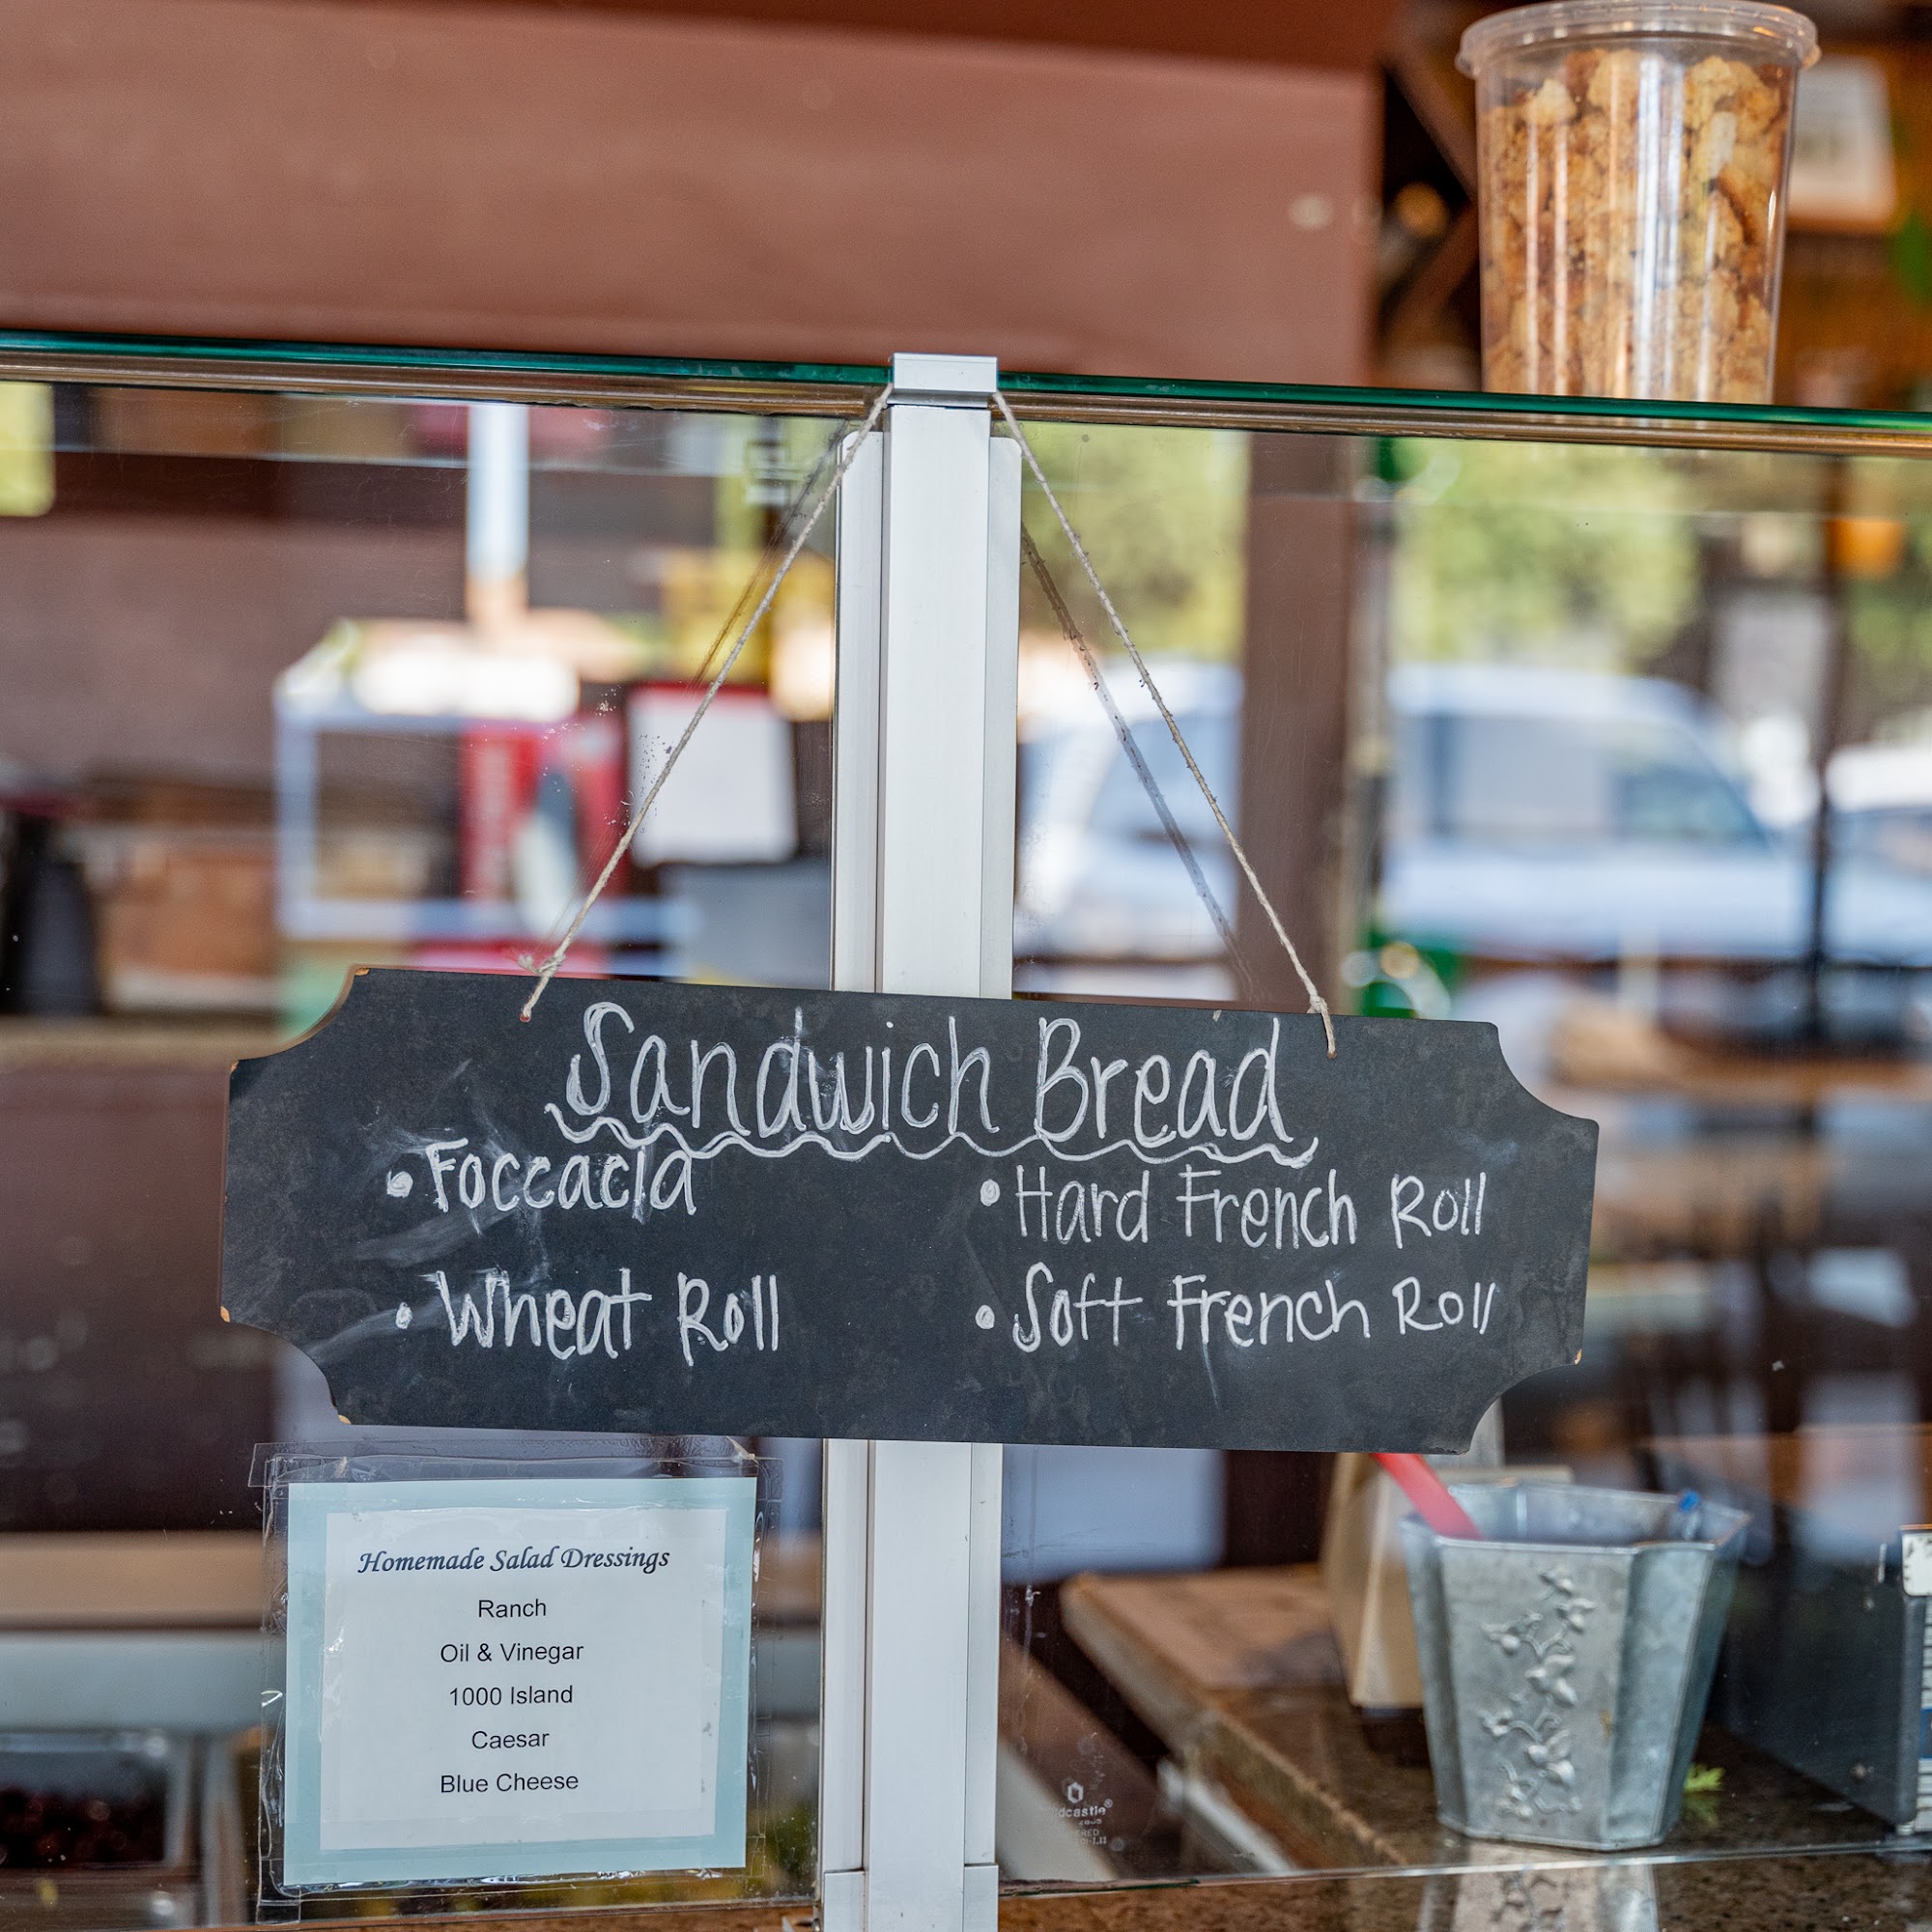 Sandwich Bread
• Foccacia
• Hard French Roll
• Wheat Roll
• Soft French Roll
Homemade Salad Dressings
Ranch
Oil & Vinegar
1000 Island
Caesar
Blue Cheese